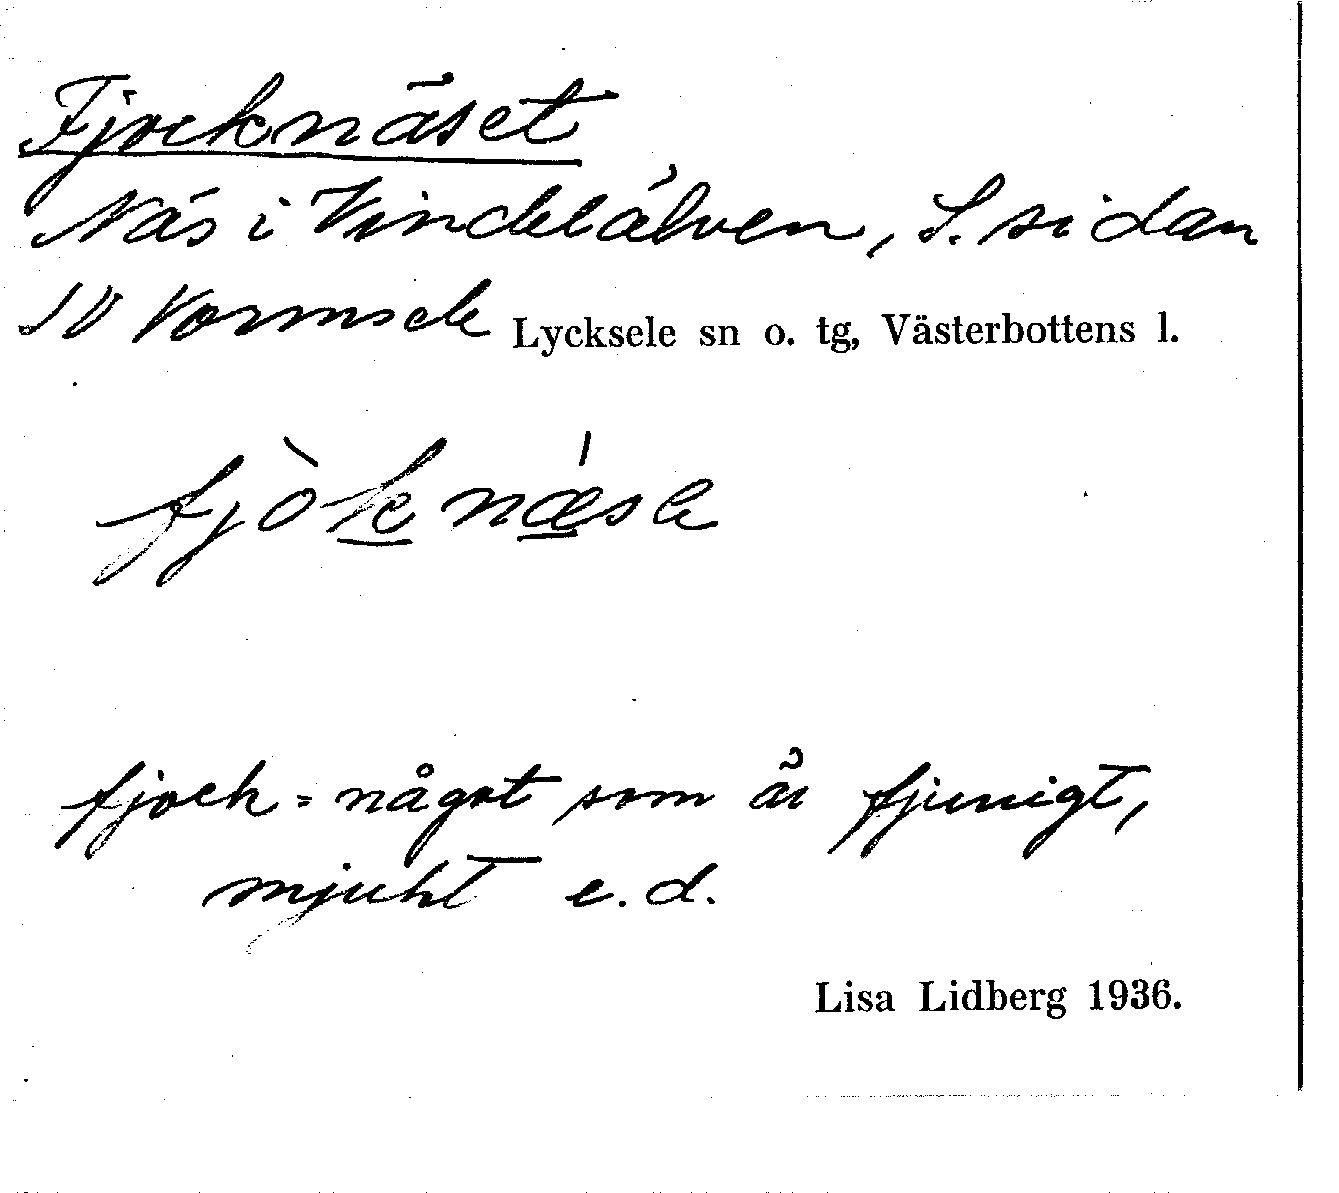 Fjocknäset
Näs i Vindelälven, S. sidan
SV Vormsele Lycksele sn o. tg, Västerbottens l.
fjòk næ'se
fjock = något som är fjunigt,
mjukt e. d.
Lisa Lidberg 1936.